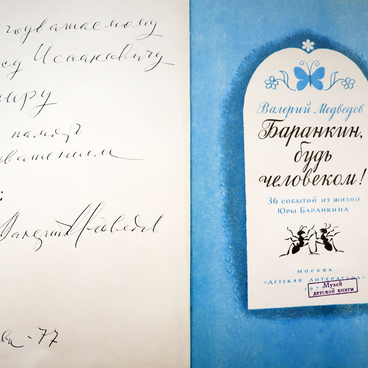 Исааковичу
память
Валерий Медведев
-77
Валерий Медведев
Баранкин,
будь
человеком!
36 событий из жизни
Юры Баранкина
МОСКВА
«ДЕТСКАЯ ЛИТЕРАТУРА»
Музей
детской книги